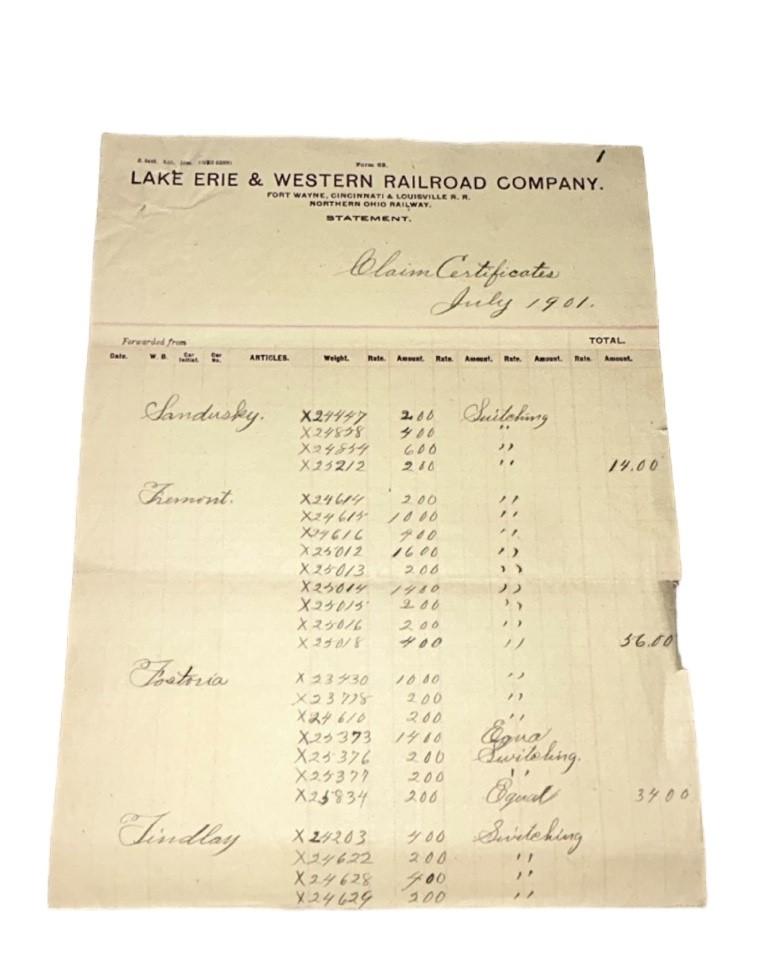 Form 69.
1
LAKE ERIE & WESTERN RAILROAD COMPANY.
FORT WAYNE, CINCINNATI & LOUISVILLE R. R.
NORTHERN OHIO RAILWAY.
STATEMENT.
Claim Certificates
July 1901.
Forwarded from TOTAL.
Date. W. B. Car Initial. Car No. ARTICLES. Weight. Rate. Amount. Rate. Amount. Rate. Amount. Rate. Amount.
Sandusky. X24447 2 00 Switching
X24858 4 00 "
X24854 6 00 "
X25212 2 00 " 14.00
Fremont. X24614 2 00 "
X24615 10 00 "
X24616 4 00 "
X25012 16 00 "
X25013 2 00 "
X25014 14 00 "
X25015 2 00 "
X25016 2 00 "
X25018 4 00 " 56.00
Fostoria X23430 10 00 "
X23778 2 00 "
X24610 2 00 "
X25373 14 00 Equa
X25376 2 00 Switching.
X25377 2 00 "
X25834 2 00 Equal 34 00
Findlay X24203 4 00 Switching
X24622 2 00 "
X24628 4 00 "
X24629 2 00 "